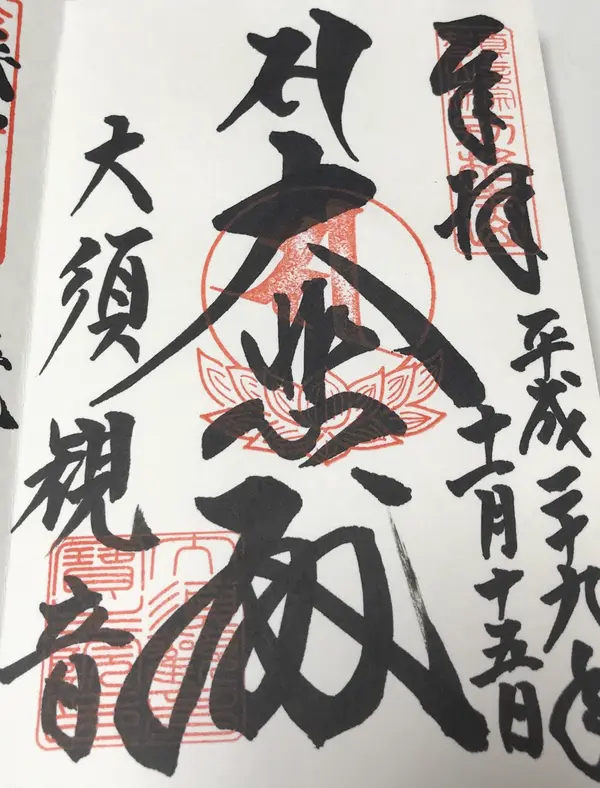 奉拝
平成二十九年
十一月十五日
大悲殿
大須観音